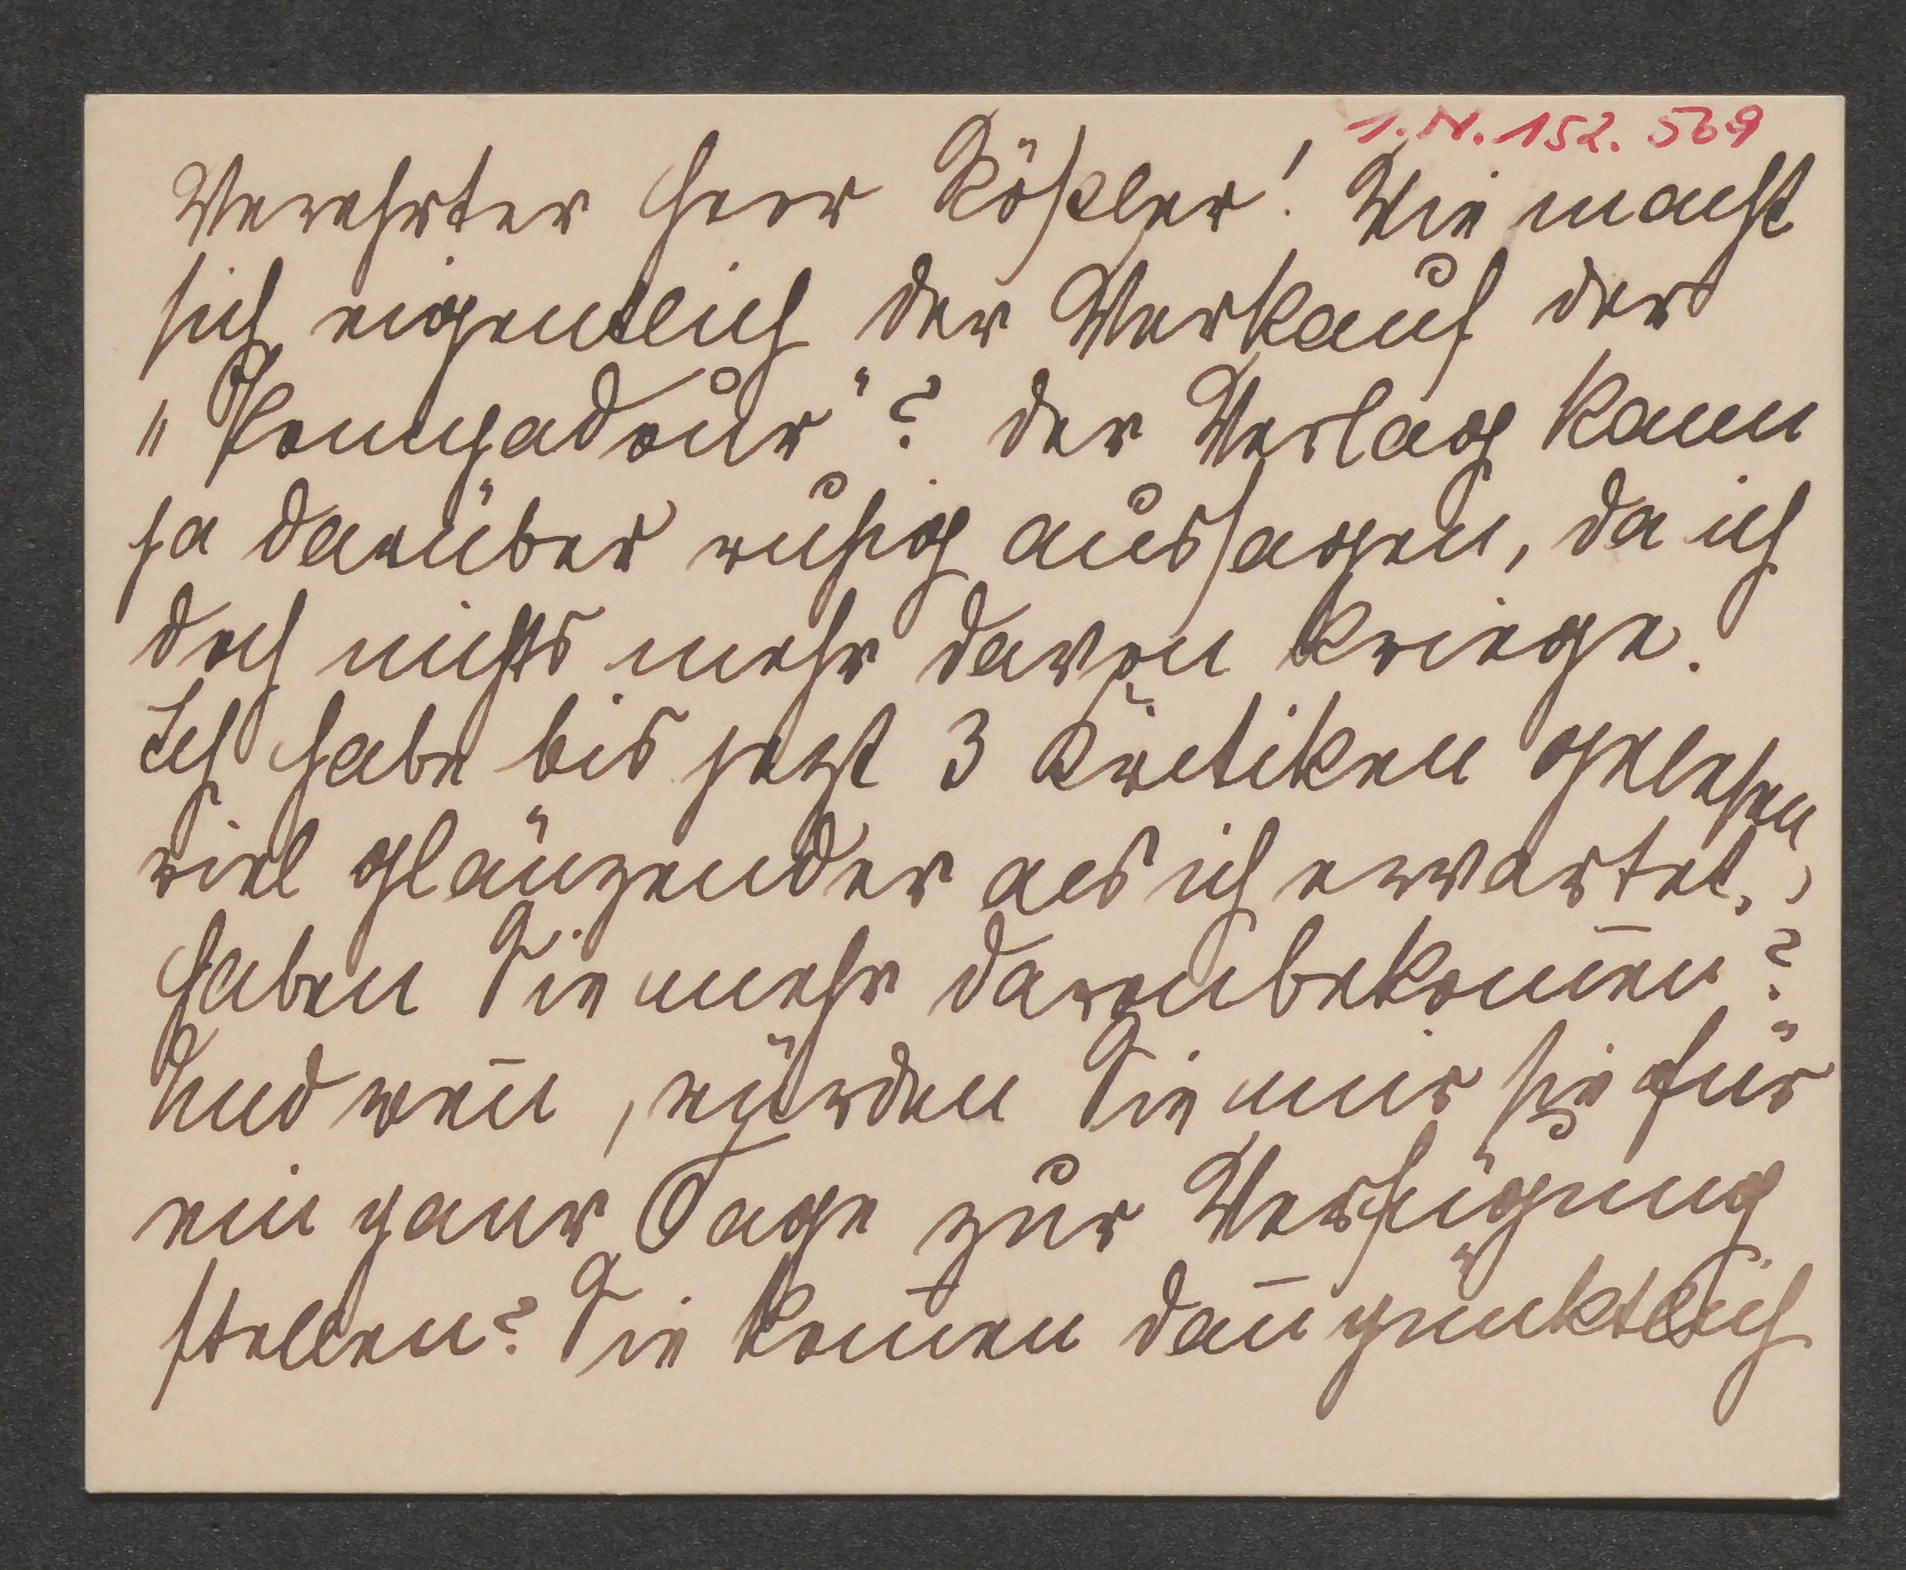 I.N. 152.569
Verehrter Herr Rößler! Wie macht
sich eigentlich der Verkauf der
„Pompadour"? Der Verlag kann
ja darüber ruhig aussagen, da ich
doch nichts mehr davon kriege.
Ich habe bis jetzt 3 Kritiken gelesen
viel glänzender als ich erwartet,
haben Sie mehr davon bekom̅en?
Und wen̅, würden Sie mir sie für
ein paar Tage zur Verfügung
stellen? Sie kom̅en dan̅ pünktlich